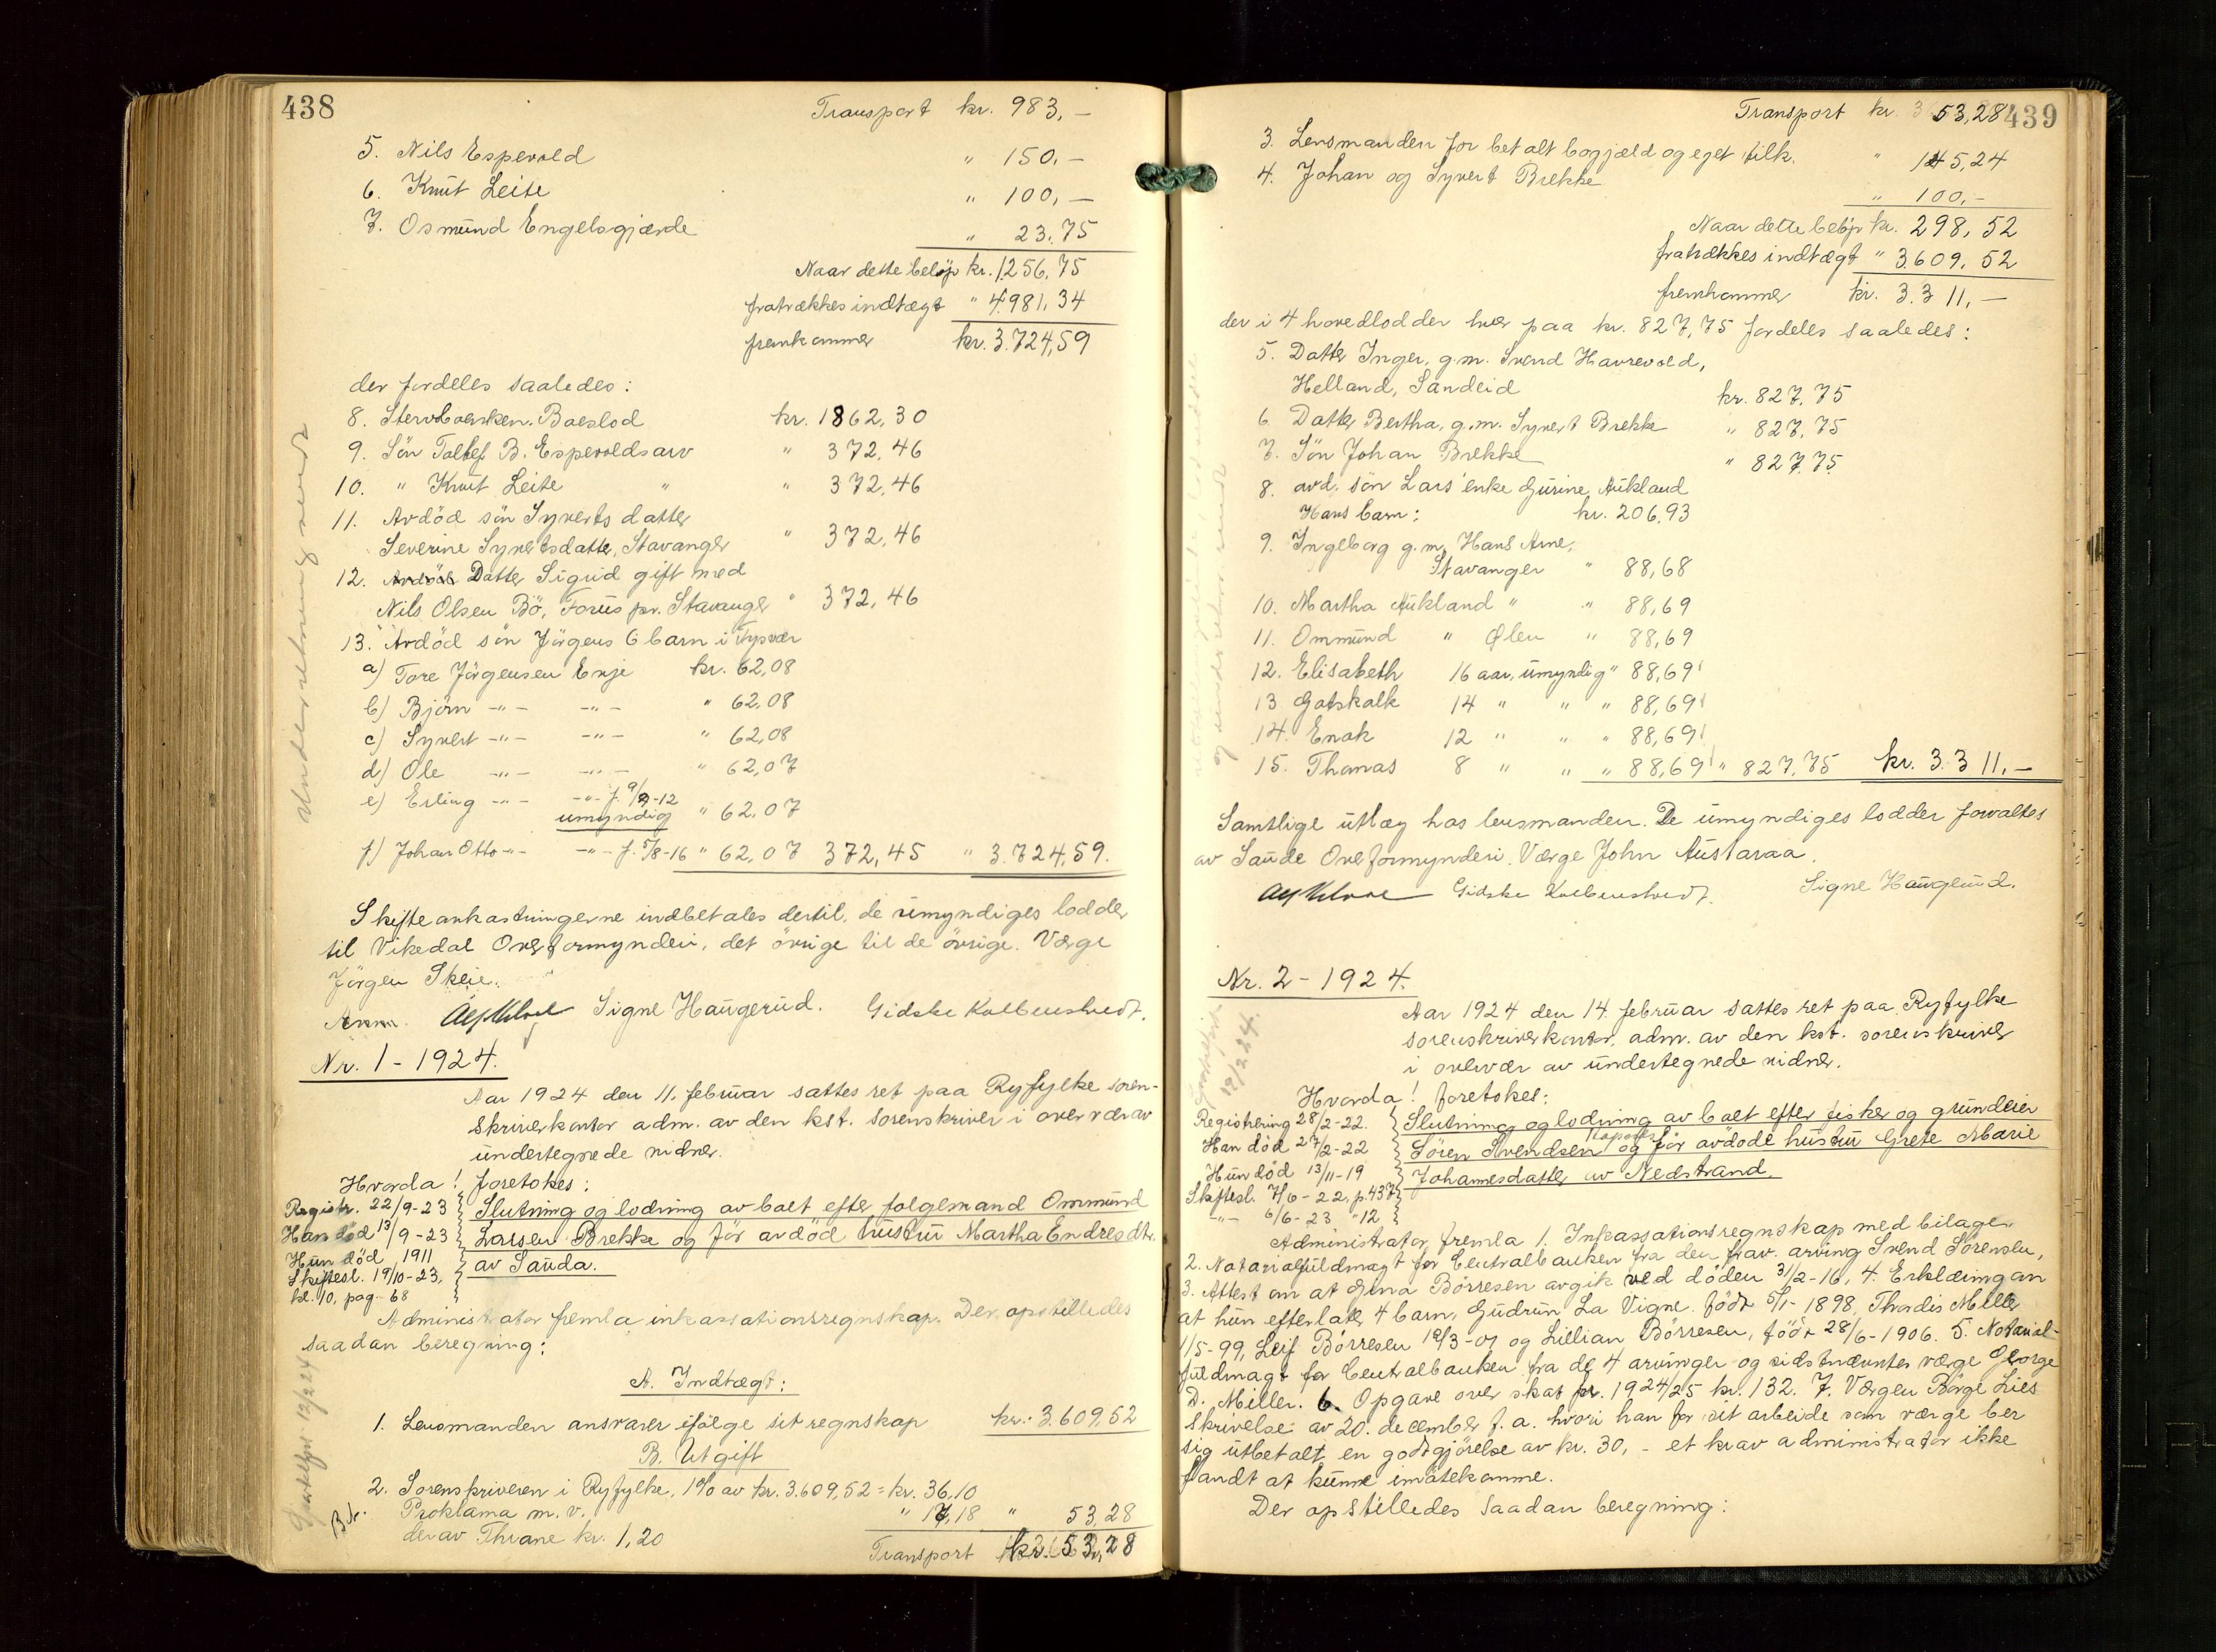 438
Transport kr. 983,-
5. Nils Espevold " 150,-
6. Knut Leite " 100,-
7. Osmund Engelsgjærde " 23,75
Naar dette beløp kr. 1256,75
fratrækkes indtægt " 4981,34
fremkommer kr. 3.724,59
der fordeles saaledes:
8. Stervboersken. Boeslod kr. 1862,30
9. Søn Tollef B. Espevolds arv " 372,46
10. " Knut Leite " " 372,46
11. Avdöd sön Syverts datter
Severine Syvertsdatter, Stavanger " 372,46
12. Datter Sigrid gift med
Nils Olsen Bö, Forus pr. Stavanger " 372,46
13. Avdöd sön Jörgens 6 barn i Tysvær
a) Tore Jörgensen Erje kr. 62,08
b) Björn -"- -"- " 62,08
c) Syvert -"- -"- " 62,08
d) Ole -"- -"- " 62,07
e) Erling -"- -"- f. 9/9-12
umyndig " 62,07
f) Johan Otto -"- -"- f. 5/8-16 " 62,07 372,45 " 3.724,59.
Underretning sendt
Skifteomkastningerne indbetales dertil, de umyndiges lodder
til Vikedal Overformynderi, det övrige til de övrige. Værge
Jörgen Skeie.
Signe Haugerud. Gidske Kolbenstvedt.
Nr. 1 - 1924.
Aar 1924 den 11. februar sattes ret paa Ryfylke soren-
skriverkontor adm. av den kst. sorenskriver i overvær av
undertegnede vidner.
Hvorda! foretokes:
Registr. 22/9-23
Han död 13/9-23
Hun död 1911
Skiftesl. 19/10-23,
kl. 10, pag. 68
Slutning og lodning av boet efter folgemand Ommund
Larsen Brekke og før avdöd hustru Martha Endresdtr.
av Sauda.
Administrator fremla inkassationsregnskap. Der opstilledes
saadan beregning:
A. Indtægt:
1. Lensmanden ansvarer ifölge sit regnskap kr. 3.609,52
B. Utgift
2. Sorenskriveren i Ryfylke, 1% av kr. 3.609,52 = kr. 36,10
Proklama m. v. " 17,18 " 53,28
derav Thrane kr. 1,20
Transport kr. 53,28
439
Transport kr. 53,28
3. Lensmanden for betalt bogjæld og eget tilk. " 145,24
4. Johan og Syvert Brekke " 100,-
Naar dette beløp kr. 298,52
fratrækkes indtægt " 3.609,52
fremkommer kr. 3.311,-
der i 4 hovedlodder hver paa kr. 827,75 fordeles saaledes:
5. Datter Inger, g.m. Svend Havrevold,
Helland, Sandeid kr. 827,75
6. Datter Bertha, g.m. Syvert Brekke " 827,75
7. Sön Johan Brekke " 827,75
8. avd. sön Lars' enke Gurine Aukland
kr. 206,93
Hans barn:
9. Ingeborg g.m. Hans Arne,
Stavanger " 88,68
10. Martha Aukland " " 88,69
11. Ommund " Ølen " 88,69
12. Elisabeth 16 aar, umyndig " 88,69
13. Gotskalk 14 " " " 88,69
14. Enok 12 " " " 88,69
15. Thomas 8 " " " 88,69 " 827,75 kr. 3.311,-
Samtlige utlæg hos lensmanden. De umyndiges lodder forvaltes
av Saude Overformynderi. Værge John Austaraa.
Gidske Kolbenstvedt. Signe Haugerud.
Nr. 2 - 1924.
Aar 1924 den 14. februar sattes ret paa Ryfylke
sorenskriverkontor, adm. av den kst. sorenskriver
i overvær av undertegnede vidner.
Hvorda! foretokes:
Registrering 28/2-22.
Han död 27/2-22
Hun död 13/11-19
Skiftesl. 7/6-22, p. 437
-"- 6/6-23 " 12
Slutning og lodning av boet efter fisker og grunddeier
Sören Svendsen og før avdöde hustru Grete Marie
Johannesdatter av Nedstrand.
Administrator fremla 1. Inkassationsregnskap med bilager
2. Notarialfuldmagt for Centralbanken fra den frav. arving Svend Sörensen,
3. Attest om at Gina Börresen avgik ved döden 31/2-16, 4. Erklæring om
at hun efterlater 4 barn, Gudrun La Vigne, födt 5/1-1898, Thordis Miller
1/5-99, Leif Börresen 19/3-01 og Lillian Börresen, födt 28/6-1906. 5. Notarial-
fuldmagt for Centralbanken fra de 4 arvinger og sidstnævntes værge George
D. Miller. 6. Opgave over skat pr. 1924/25 kr. 132. 7. Værgen Börge Lies
skrivelse av 20. december f. a. hvori han for sit arbeide som værge ber
sig utbetalt en godtgjörelse av kr. 30,- et krav administrator ikke
fandt at kunne imötekomme.
Der opstilledes saadan beregning: